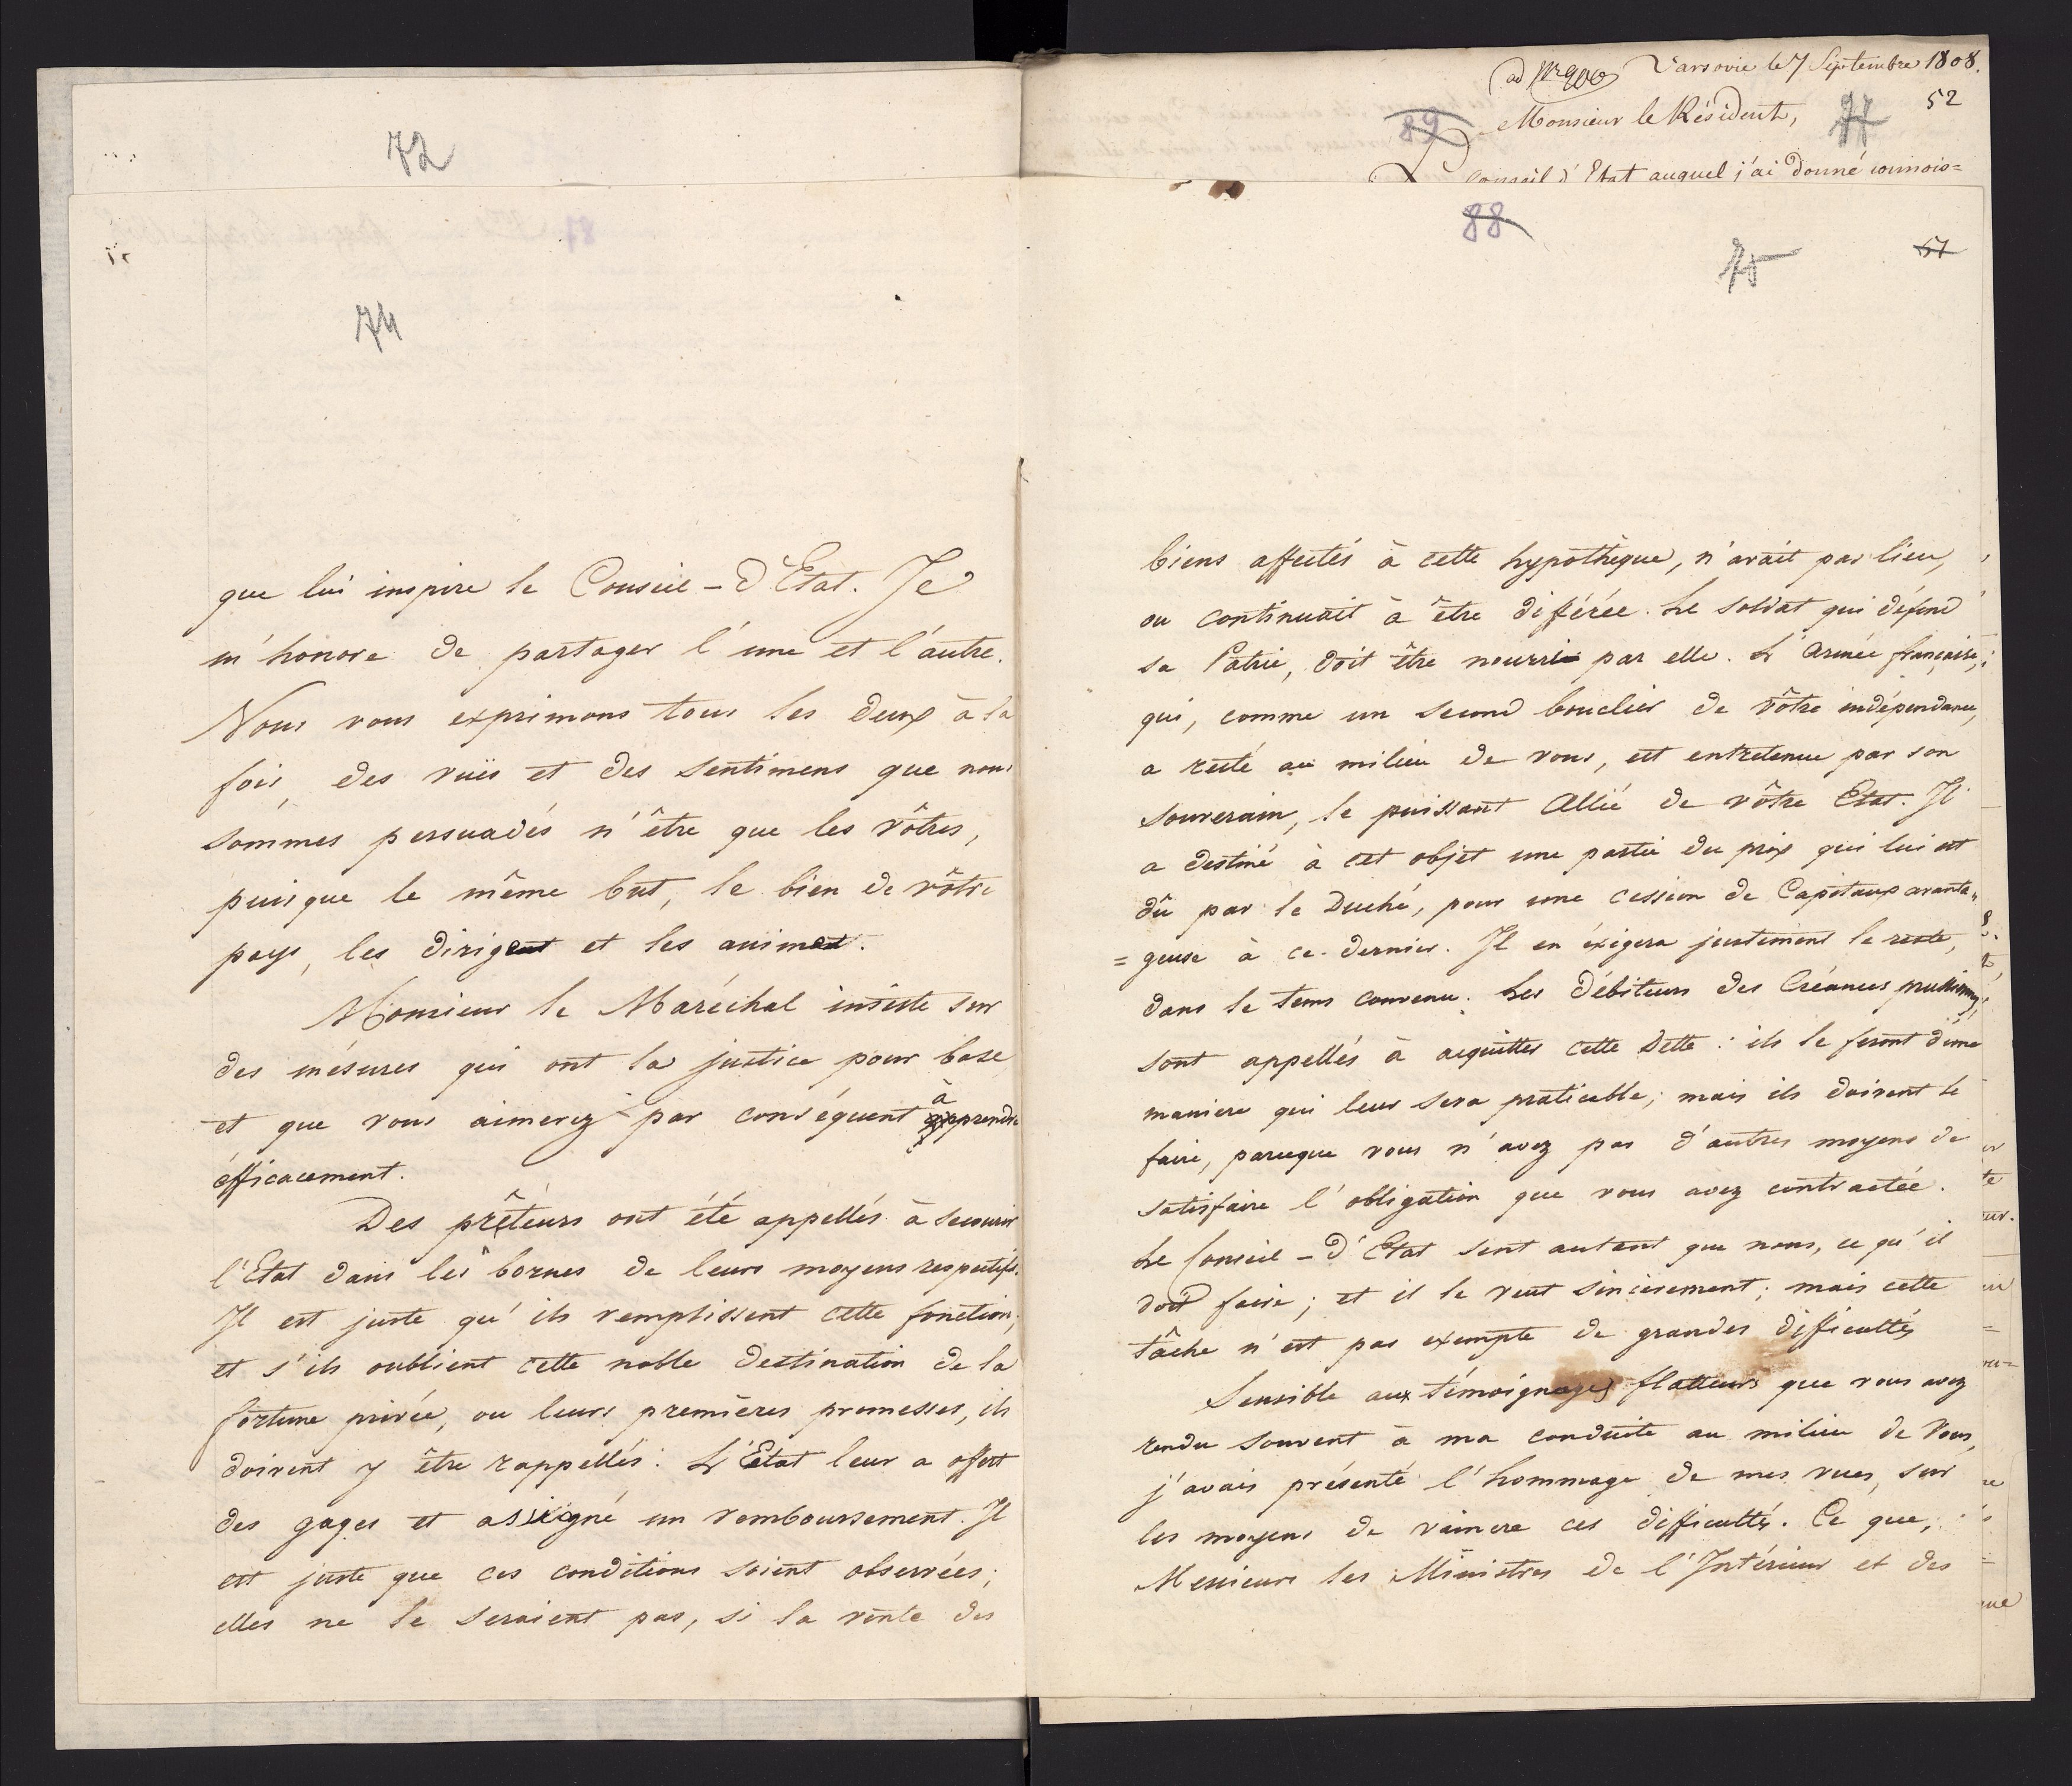 72
74
que lui inspire le Conseil-d'Etat. Je
m'honore de partager l'une et l'autre.
Nous vous exprimons tous les deux à la
fois, des vuës et des sentimens que nous
sommes persuadés n'être que les vôtres,
puisque le même but, le bien de vôtre
pays, les dirigent et les animent.
Monsieur le Maréchal insiste sur
des mésures qui ont la justice pour base
et que vous aimerez par conséquent à
prendre
éfficacement.
Des prêteurs ont été appellés à secourir
l'Etat dans les bornes de leurs moyens respectifs.
Il est juste qu'ils remplissent cette fonction;
et s'ils oublient cette noble destination de la
fortune privée, ou leurs premières promesses, ils
doivent y être rappellés. L'Etat leur a offert
des gages et assigné un remboursement. Il
est juste que ces conditions soient observées;
elles ne le seraient pas, si la vente des
ad Nr 900
Varsovie le 7 Septembre 1808.
52
Monsieur le Résident,
77
89
Conseil d'Etat auquel j'ai donné connois=
88
75
51
biens affectés à cette hypothèque, n'avait pas lieu,
ou continuait à être différée. Le soldat qui défend
sa Patrie, doit être nourri par elle. L'Armée française,
qui, comme un second bouclier de vôtre indépendance,
a resté au milieu de vous, est entretenue par son
souverain, le puissant Allié de vôtre Etat. Il
a destiné à cet objet une partie du prix qui lui est
dû par le Duché, pour une cession de Capitaux avanta=
=geuse à ce dernier. Il en éxigera justement le reste,
dans le tems convenu. Les Débiteurs des Créances prussiennes,
sont appellés à acquitter cette Dette: ils le feront d'une
maniere qui leur sera praticable; mais ils doivent le
faire, parceque vous n'avez pas d'autres moyens de
satisfaire l'obligation que vous avez contractée.
Le Conseil-d'Etat sent autant que nous, ce qu'il
doit faire; et il le veut sincèrement; mais cette
tâche n'est pas exempte de grandes difficultés
Sensible aux témoignages flatteurs que vous avez
rendu souvent à ma conduite au milieu de Vous,
j'avais présenté l'hommage de mes vues, sur
les moyens de vaincre ces difficultés. Ce que,
Messieurs les Ministres de l'Intérieur et des